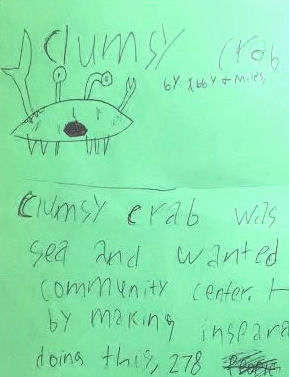 Clumsy Crab
by Abby & Miles,
Clumsy Crab was
sea and wanted
community center. H
by making inspara
doing this, 278